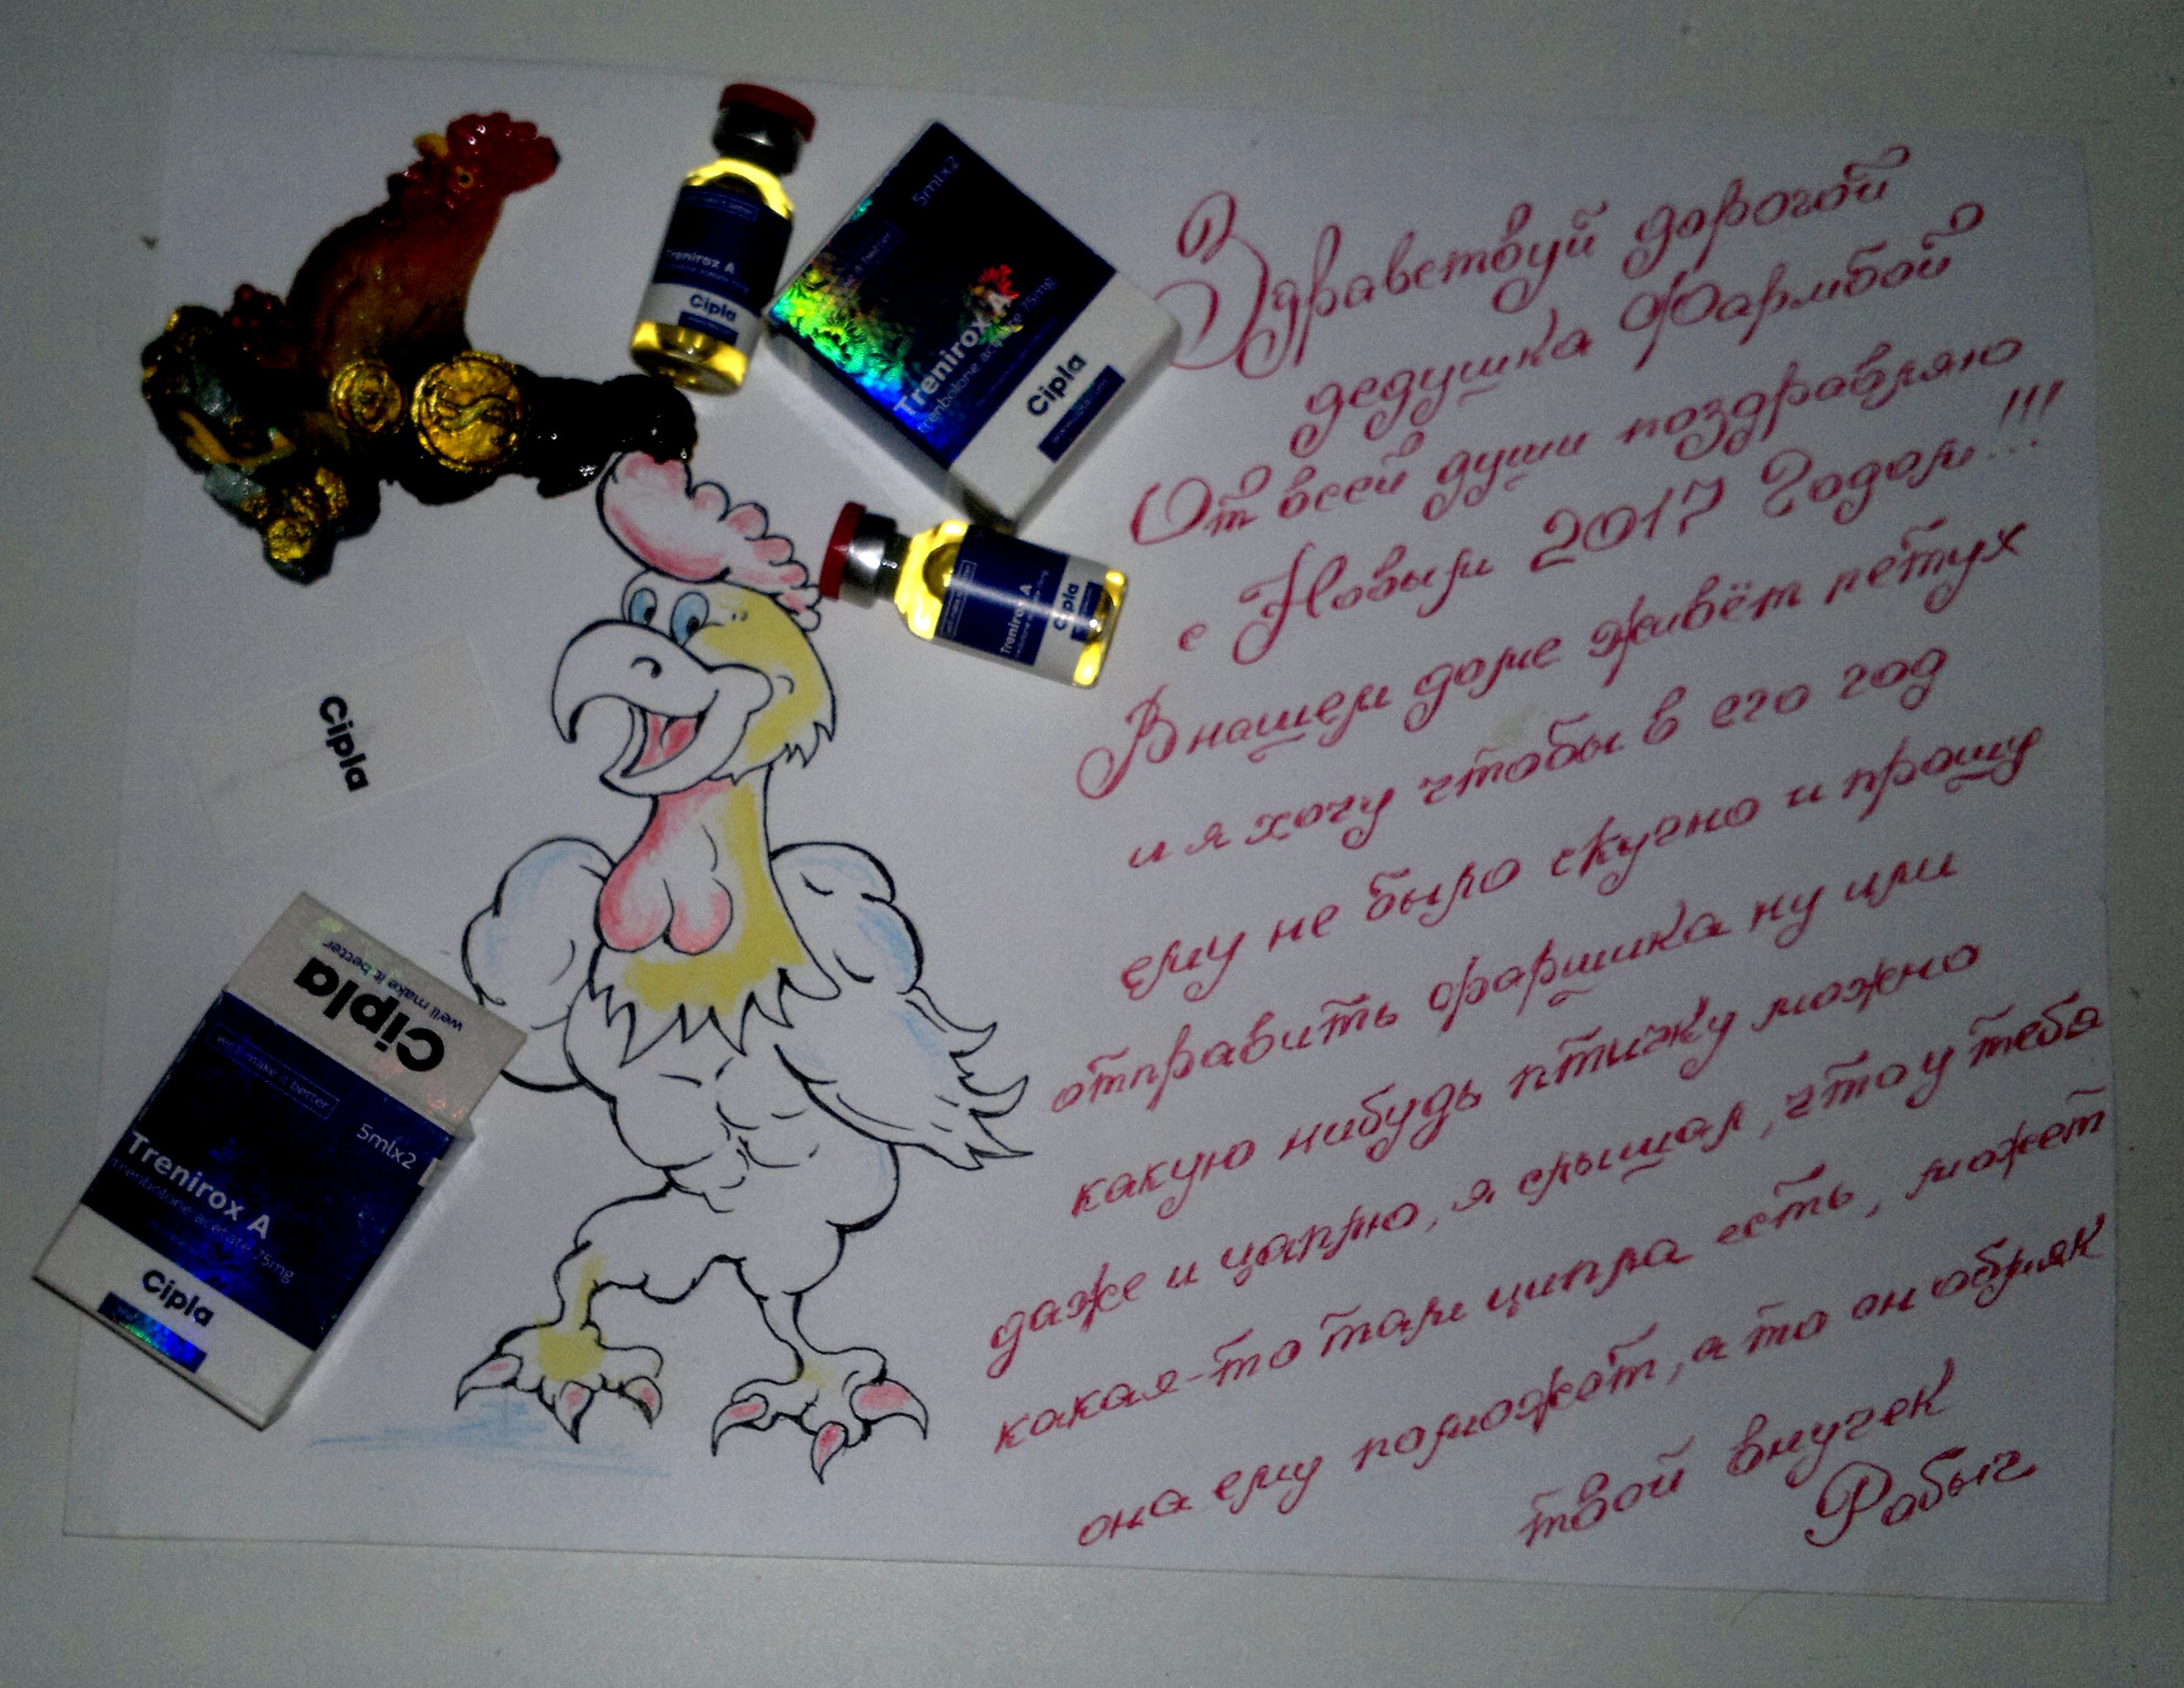 Здравствуй дорогой
дедушка Фармбой
От всей души поздравляю
с Новым 2017 Годом!!!
В нашем доме живёт петух
и я хочу чтобы в его год
ему не было скучно и прошу
отправить фаршика ну или
какую нибудь птичку можно
даже и цаплю, я слышал, что у тебя
какая-то там ципла есть, может
она ему поможет, а то он обмяк
твой внучек
Рабыч
5mlx2
Trenirox A
trenbolone acetate 75mg
Cipla
www.cipla.com
Trenirox A
Cipla
Trenirox A
Cipla
Cipla
Cipla
we'll make it better
we'll make it better
5mlx2
Trenirox A
trenbolone acetate 75mg
Cipla